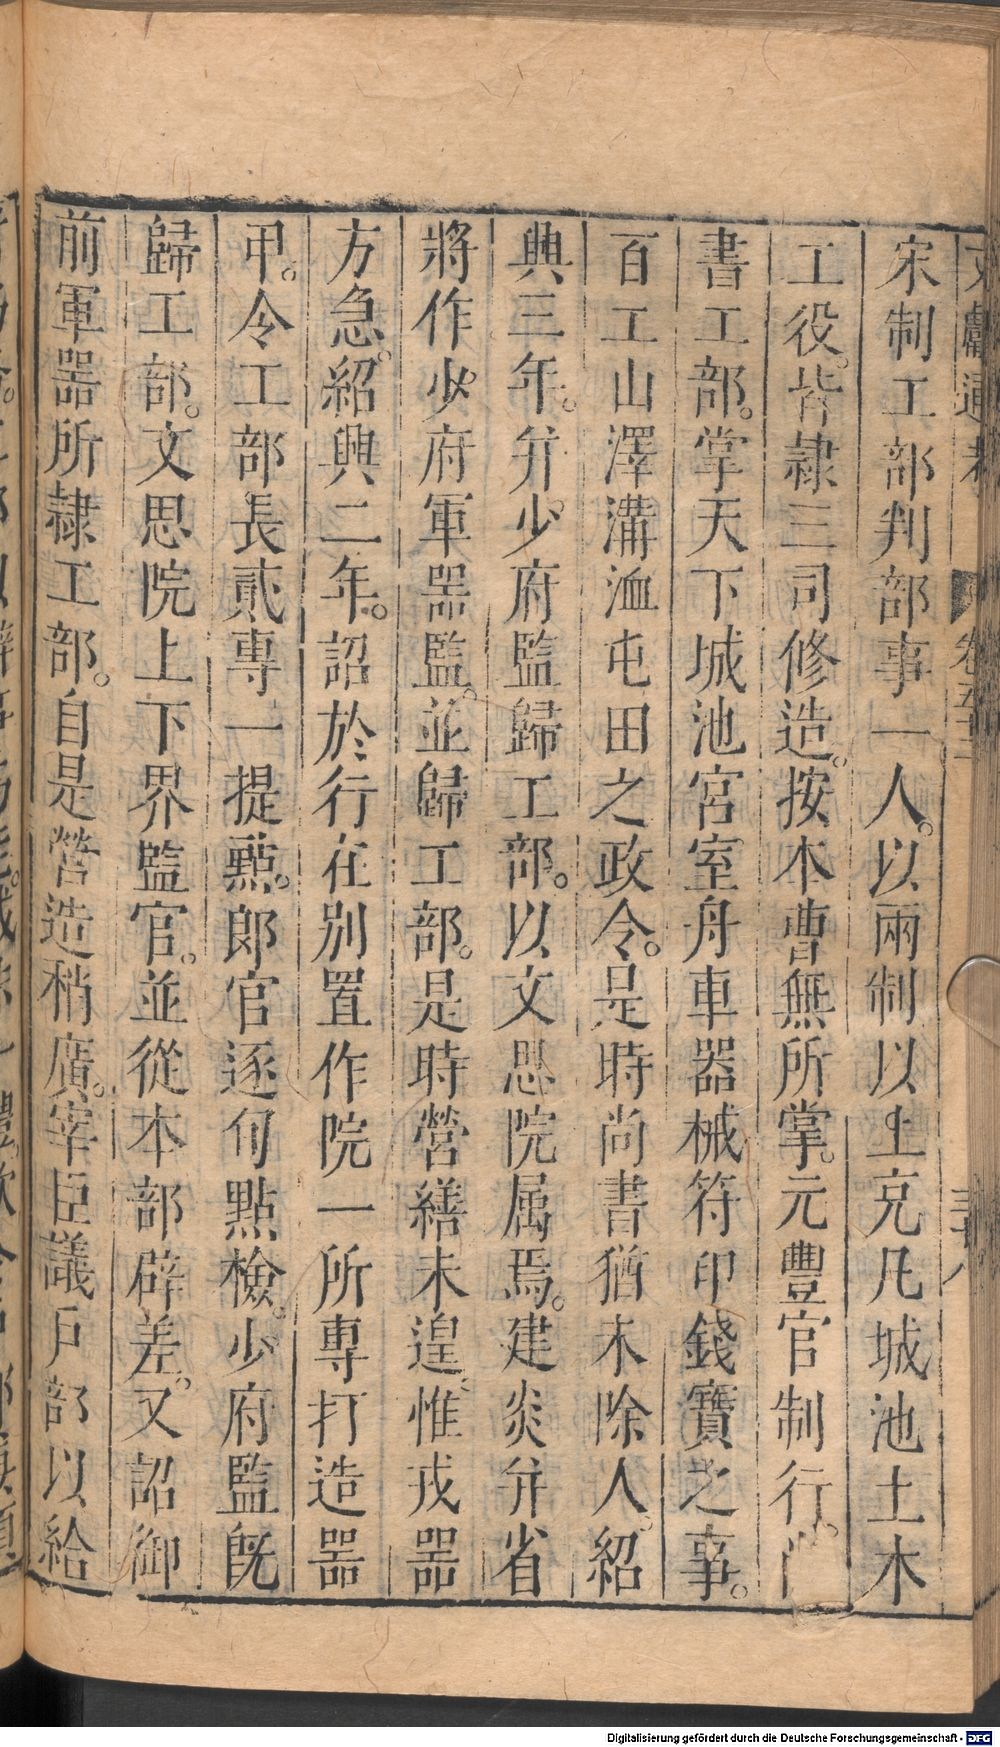 文獻通考 卷五十二
宋制工部判部事一人以兩制以上充凡城池土木
工役皆隷三司修造按本曹無所掌元豐官制行
書工部掌天下城池宮室舟車器械符印錢寶之事
百工山澤溝洫屯田之政令是時尚書猶未除人紹
興三年幷少府監歸工部以文思院属焉建炎幷省
將作少府軍噐監並歸工部是時營繕未遑惟戎噐
方急紹興二年詔於行在別置作院一所專打造噐
甲令工部長貳專一提㸃郎官逐旬點檢少府監旣
歸工部文思院上下界監官並從本部辟差又詔御
前軍噐所隷工部自是營造稍廣宰臣議戶部以給
Digitalisierung gefördert durch die Deutsche Forschungsgemeinschaft - DFG